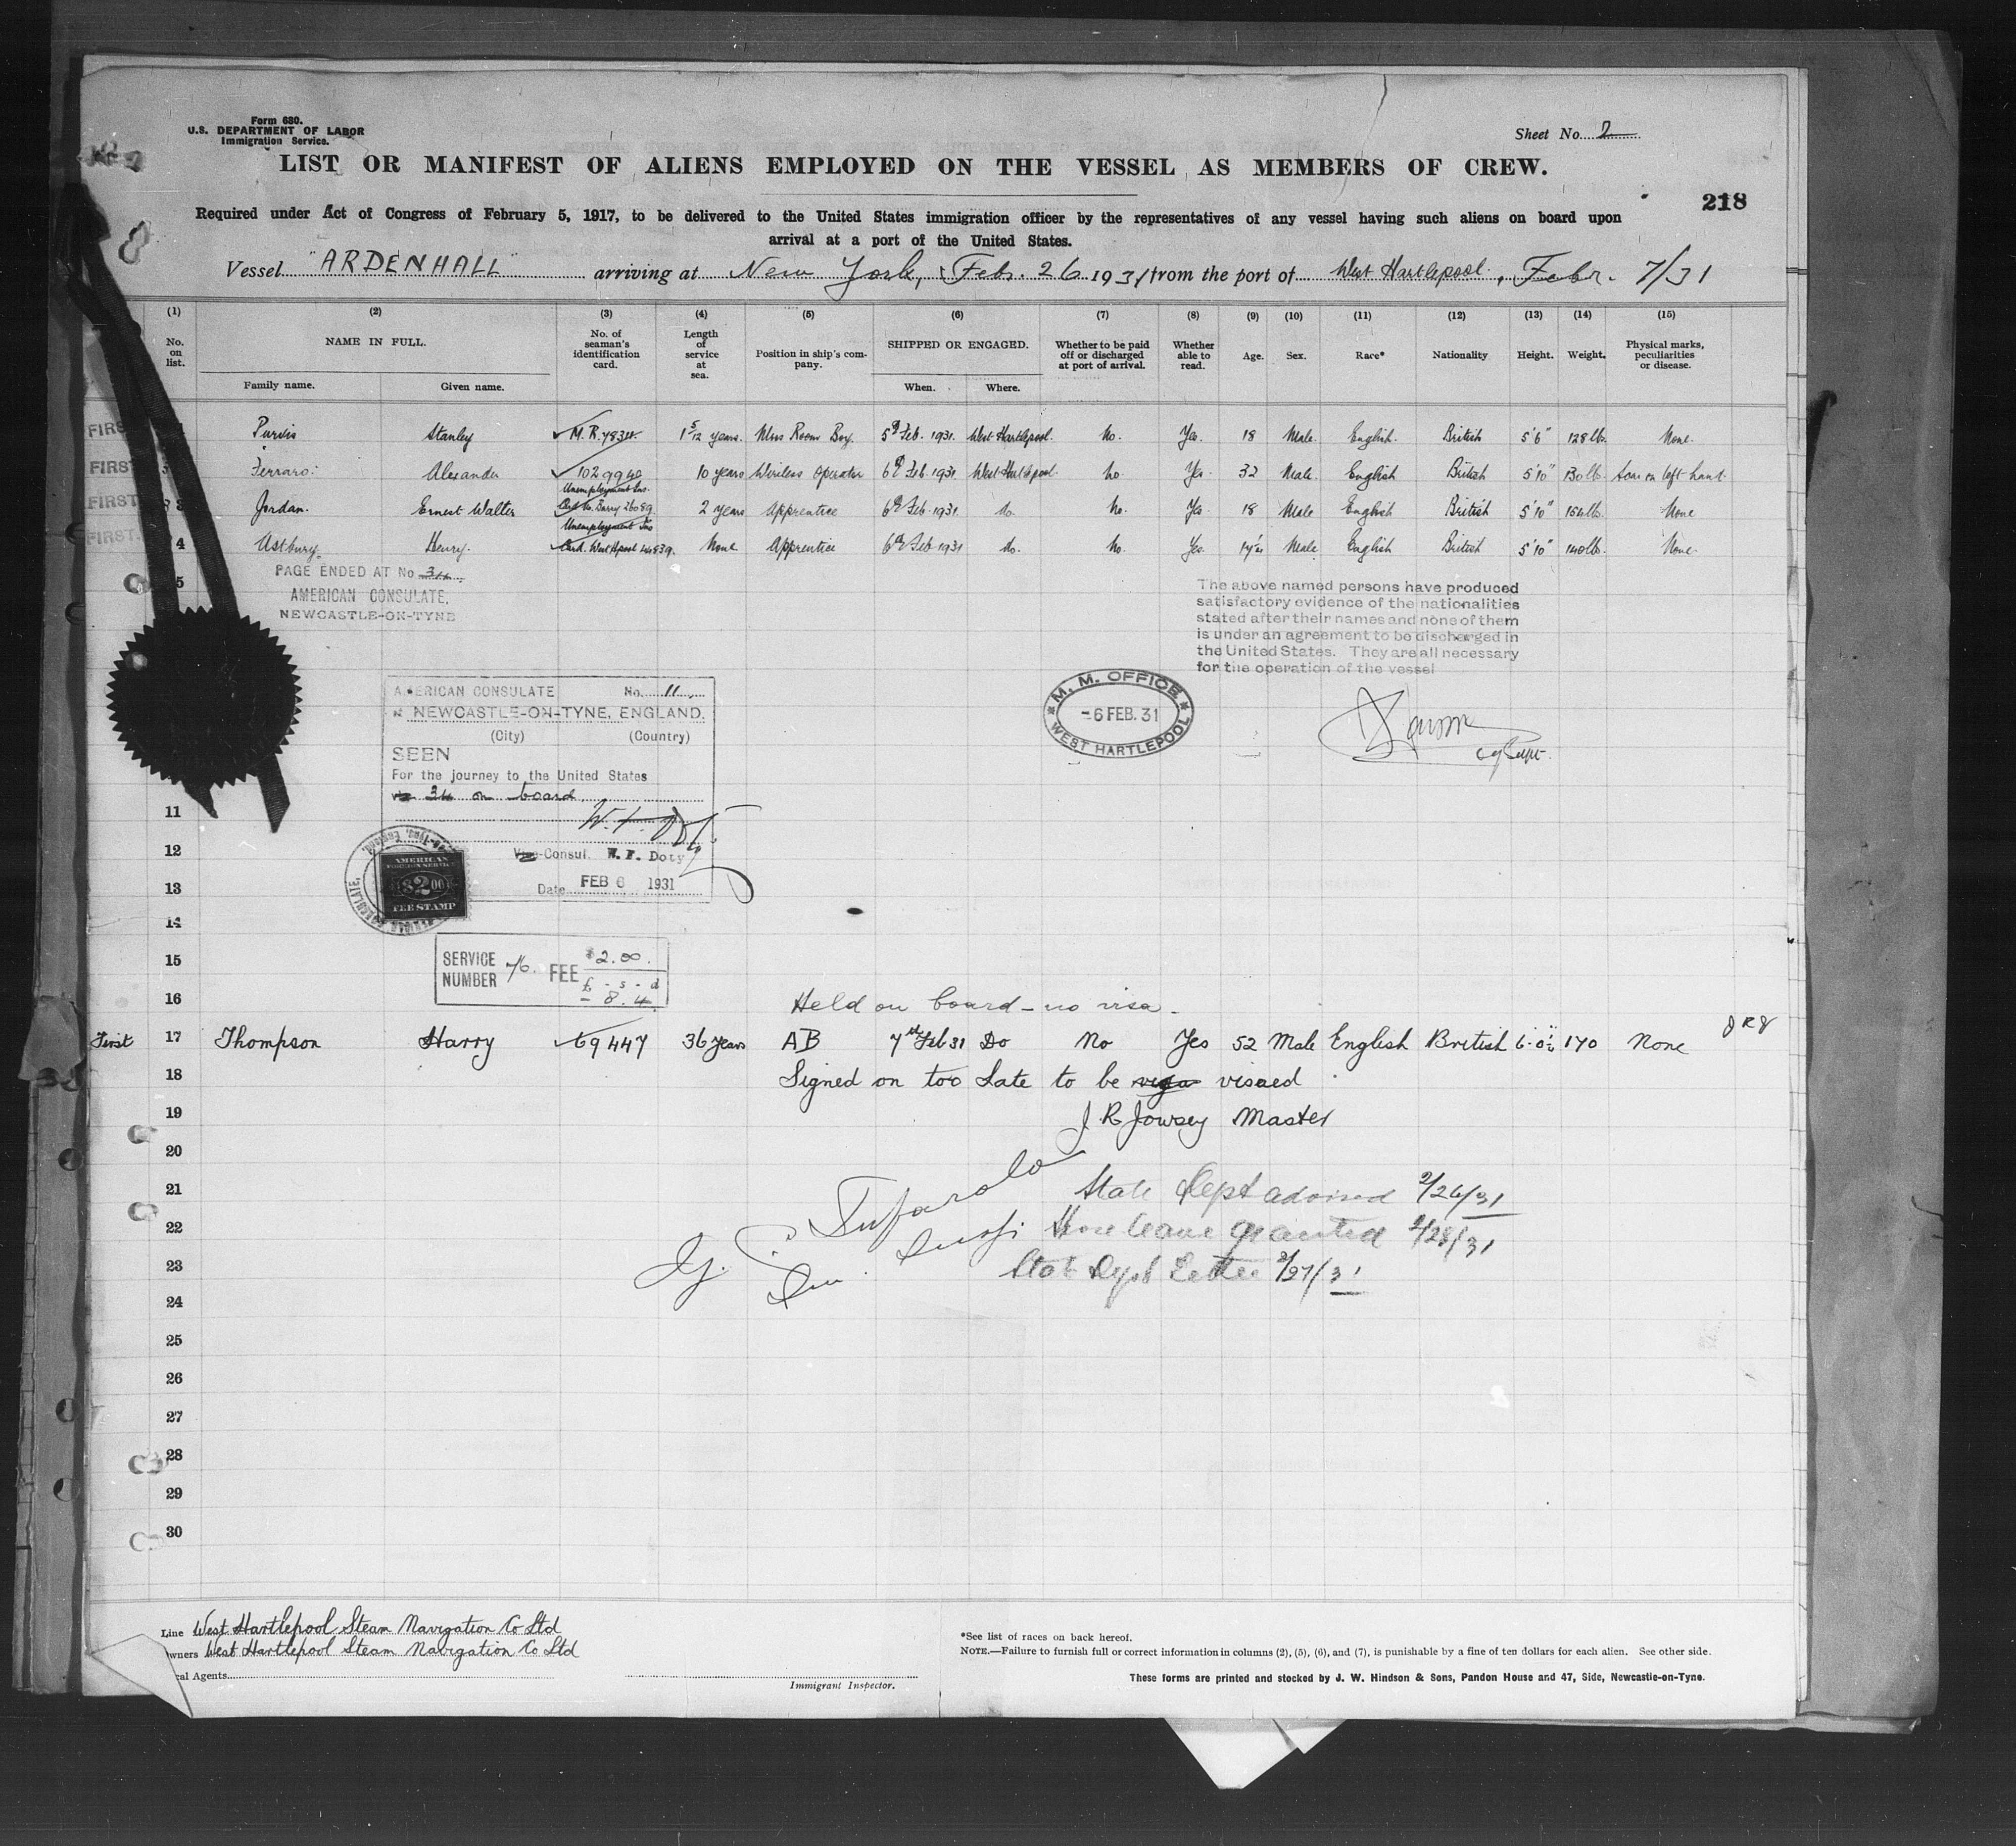 Form 680.
U.S. DEPARTMENT OF LABOR
Immigration Service.
Sheet No. 2
LIST OR MANIFEST OF ALIENS EMPLOYED ON THE VESSEL AS MEMBERS OF CREW.
218
Required under Act of Congress of February 5, 1917, to be delivered to the United States immigration officer by the representatives of any vessel having such aliens on board upon
arrival at a port of the United States.
Vessel "ARDENHALL" arriving at New York, Feb. 26 1931 from the port of West Hartlepool, Febr. 7/31
(1) (2) (3) (4) (5) (6) (7) (8) (9) (10) (11) (12) (13) (14) (15)
No. on list. NAME IN FULL. Family name. Given name. No. of seaman's identification card. Length of service at sea. Position in ship's company. SHIPPED OR ENGAGED. When. Where. Whether to be paid off or discharged at port of arrival. Whether able to read. Age. Sex. Race* Nationality Height. Weight. Physical marks, peculiarities or disease.
FIRST Purvis Stanley M.R. 1 5/12 years. Mess Room Boy. 5th Feb. 1931. West Hartlepool. No. Yes. 18 Male. English. British 5'6" 128 lb. None.
FIRST Ferraro. Alexander 1029940 10 years Wireless Operator 6th Feb 1931 West Hartlepool. No Yes. 32 Male. English British 5'10" 130 lb. Scar on left hand.
FIRST 3 Jordan. Ernest Walter Unemployment Ins. Card No. Barry 26089 2 years Apprentice 6th Feb 1931. do. No. Yes 18 Male English British 5'10" 154 lb. None
FIRST. 4 Astbury. Henry. Unemployment Ins Card. West Hpool 44839. None Apprentice 6th Feb 1931 do. No. Yes. 17 Male English British 5'10" 140 lb. None.
5
PAGE ENDED AT No 34
AMERICAN CONSULATE,
NEWCASTLE-ON-TYNE
The above named persons have produced
satisfactory evidence of the nationalities
stated after their names and none of them
is under an agreement to be discharged in
the United States. They are all necessary
for the operation of the vessel
AMERICAN CONSULATE No. 11
NEWCASTLE-ON-TYNE, ENGLAND.
(City) (Country)
SEEN
For the journey to the United States
34 on board
Vice-Consul. W. F. Doty
Date FEB 6 1931
M. M. OFFICE
-6 FEB. 31
WEST HARTLEPOOL
AMERICAN
FOREIGN SERVICE
$2.00
FEE STAMP
11
12
13
14
SERVICE NUMBER 76. FEE $2.00.
£ - s - d
- 8. 4
15
16 Held on board - no visa.
First 17 Thompson Harry 69447 36 years AB 7th Feb 31 Do No Yes 52 Male English British 6.0½ 170 None JRJ
18 Signed on too Late to be visaed
19 J R Jowsey Master
20
21 State Dept advised 2/26/31
22 Shore leave granted 2/28/31
23 State Dept Letter 2/27/31
24
25
26
27
28
29
30
Line West Hartlepool Steam Navigation Co Ltd
Owners West Hartlepool Steam Navigation Co Ltd
Local Agents
Immigrant Inspector.
*See list of races on back hereof.
NOTE.—Failure to furnish full or correct information in columns (2), (5), (6), and (7), is punishable by a fine of ten dollars for each alien. See other side.
These forms are printed and stocked by J. W. Hindson & Sons, Pandon House and 47, Side, Newcastle-on-Tyne.